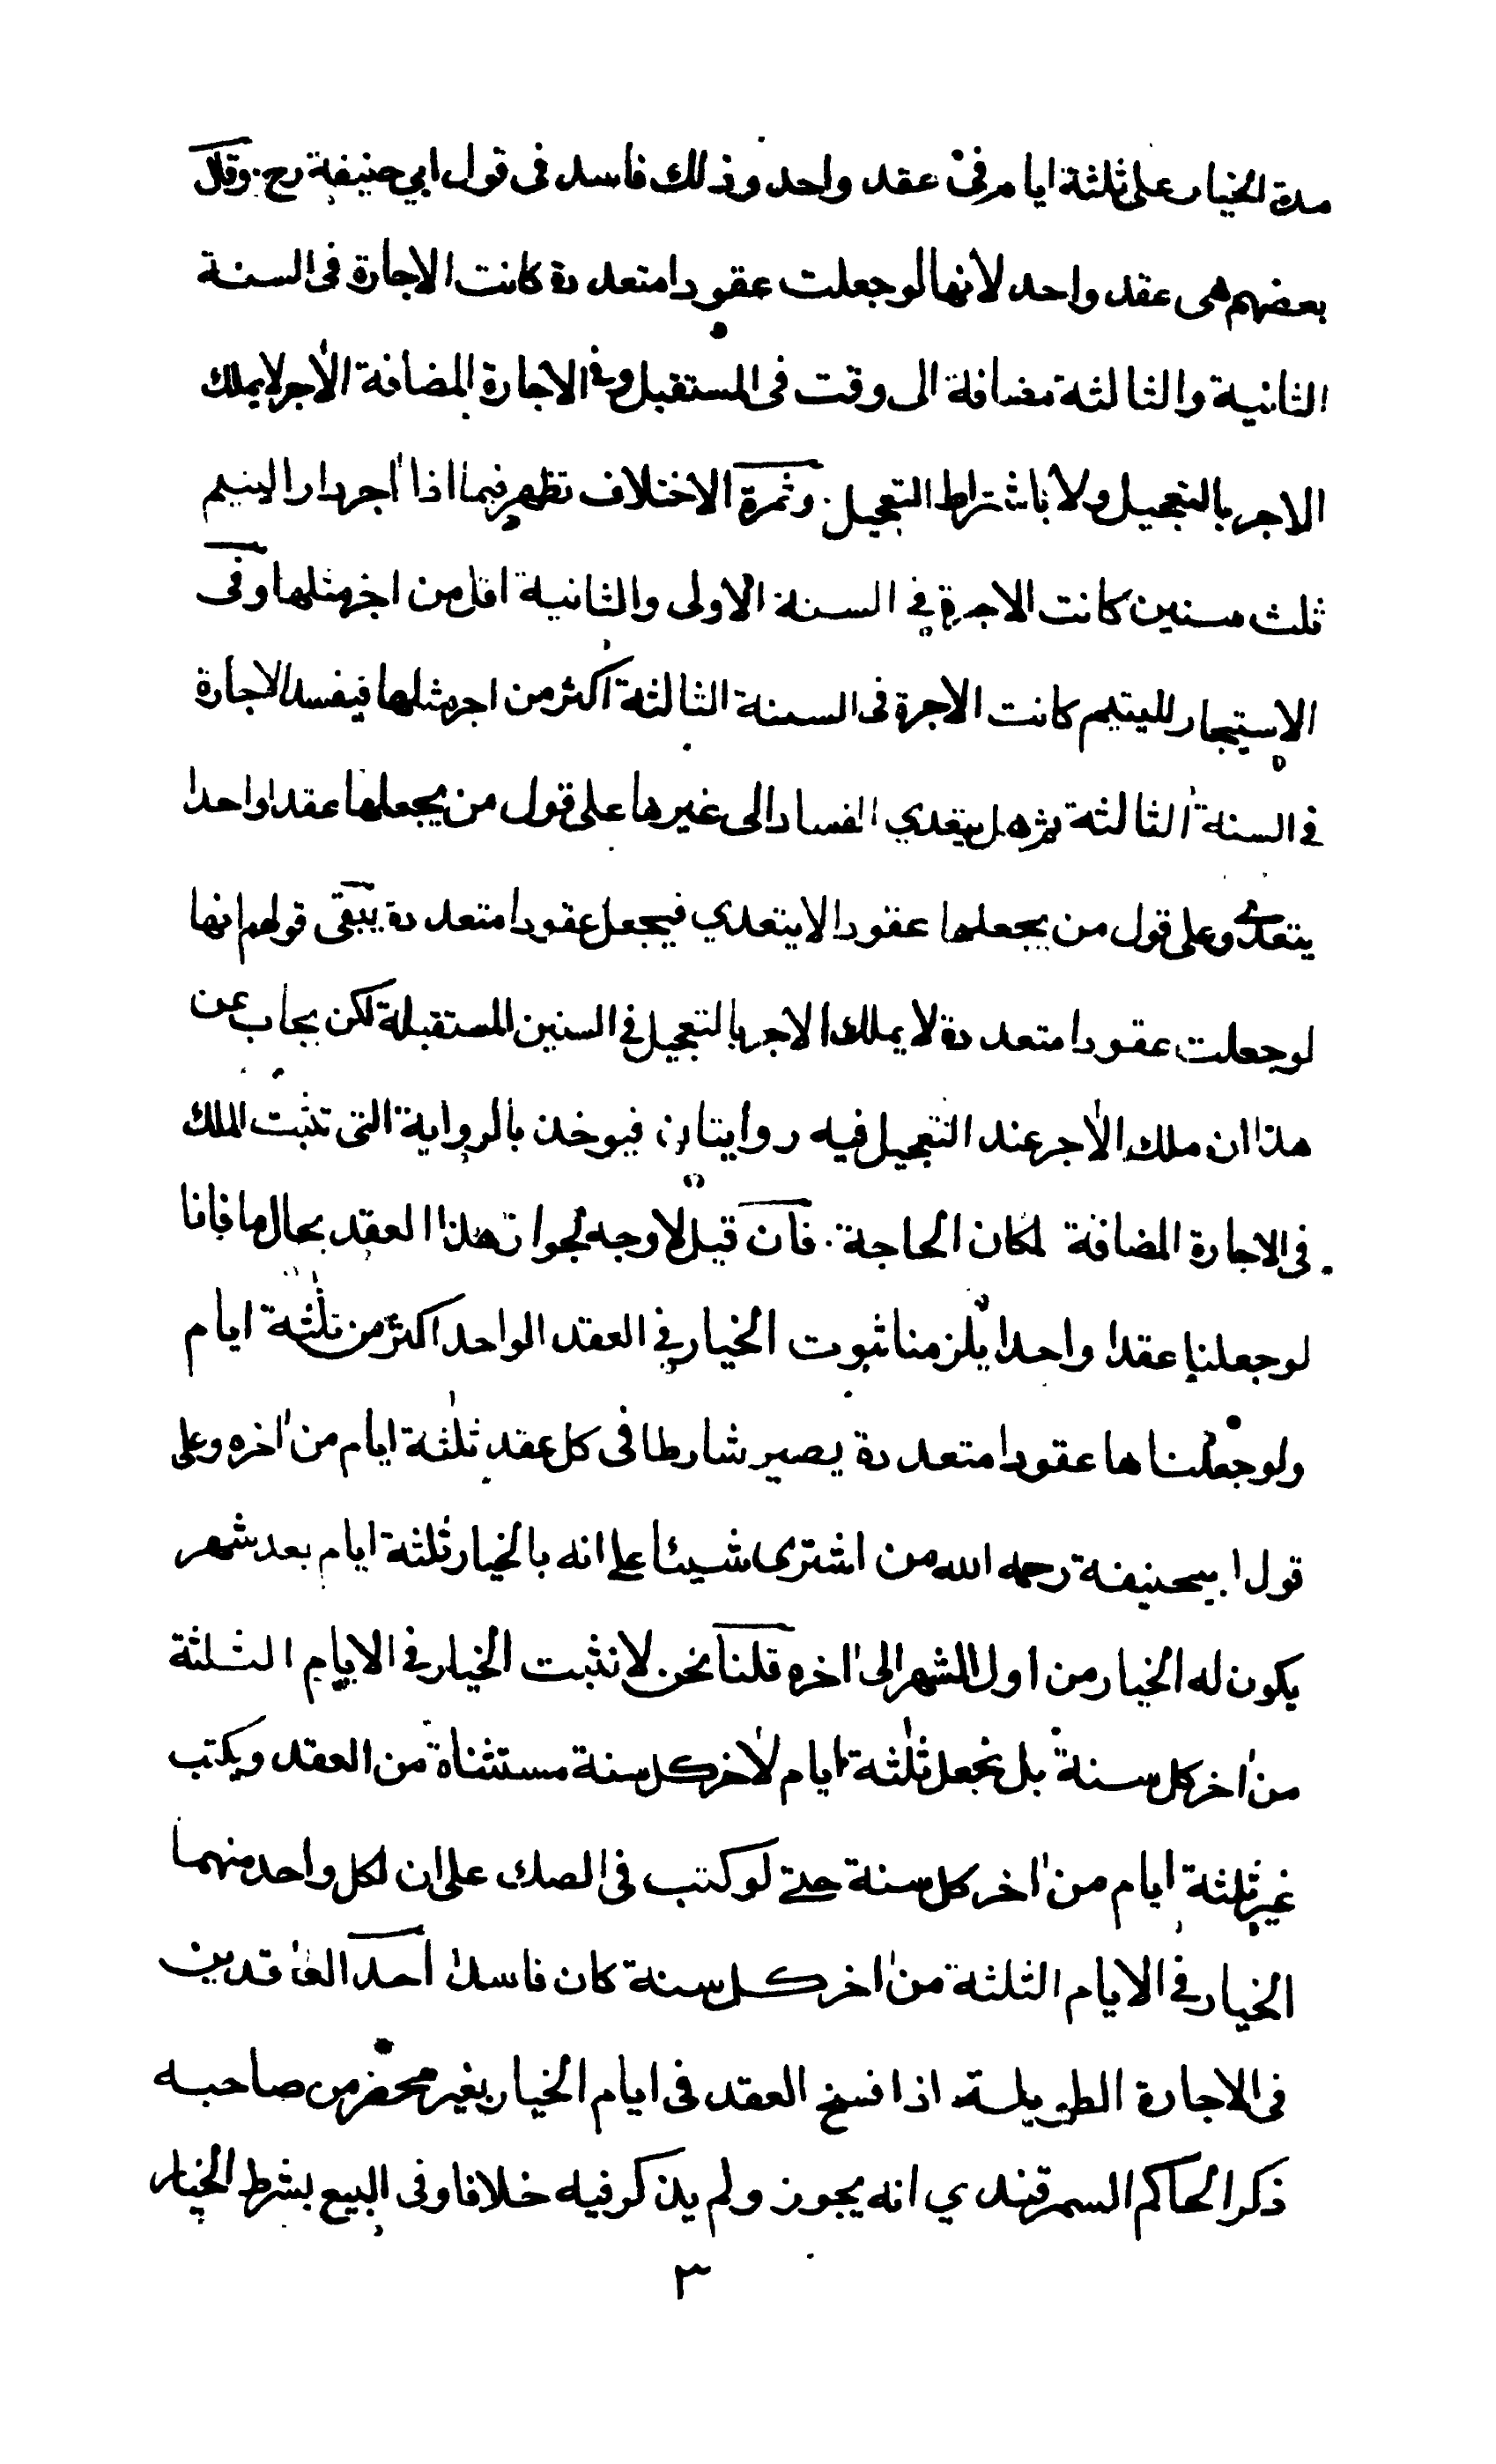 مدة الخيار على ثلثة ايام فى عقد واحد وذلك فاسد فى قول ابي حنيفة رح. وقال
بعضهم هى عقد واحد لانها لو جعلت عقودا متعددة كانت الاجارة فى السنة
الثانية والثالثة مضافة الى وقت فى المستقبل وفى الاجارة المضافة الاجر لا يملك
الاجر بالتعجيل ولا باشتراط التعجيل. وثمرة الاختلاف تظهر فيما اذا اجر دار اليتيم
ثلث سنين كانت الاجرة في السنة الاولى والثانية اقل من اجر مثلها وفى
الاستيجار لليتيم كانت الاجرة فى السنة الثالثة اكثر من اجر مثلها فيفسد الاجارة
فى السنة الثالثة ثم هل يتعدي الفساد الى غيرها على قول من يجعلها عقدا واحدا
يتعدى وعلى قول من يجعلها عقودا لا يتعدي فيجعل عقودا متعددة يبقى قولهم انها
لو جعلت عقودا متعددة لا يملك الاجر بالتعجيل في السنين المستقبلة لكن يجاب عن
هذا ان ملك الاجر عند التعجيل فيه روايتان فيوخذ بالرواية التى تثبت الملك
فى الاجارة المضافة لمكان الحاجة. فان قيل لا وجه لجواز هذا العقد بحال ما فانا
لو جعلنا عقدا واحدا يلزمنا ثبوت الخيار في العقد الواحد اكثر من ثلثة ايام
ولو جعلناها عقودا متعددة يصير شارطا فى كل عقد ثلثة ايام من اخره وعلى
قول ابيحنيفة رحمه الله من اشترى شيئا على انه بالخيار ثلثة ايام بعد شهر
يكون له الخيار من اول الشهر الى اخره قلنا نحن لا نثبت الخيار فى الايام الثلثة
من اخر كل سنة بل نجعل ثلثة ايام لاخر كل سنة مستثناة من العقد ويكتب
غير ثلثة ايام من اخر كل سنة حتى لو كتب فى الصك على ان لكل واحد منهما
الخيار فى الايام الثلثة من اخر كل سنة كان فاسدا احد العاقدين
فى الاجارة الطويلة اذا فسخ العقد فى ايام الخيار بغير محضر من صاحبه
ذكر الحاكم السمرقندي انه يجوز ولم يذكر فيه خلافا وفى البيع بشرط الخيار
٣